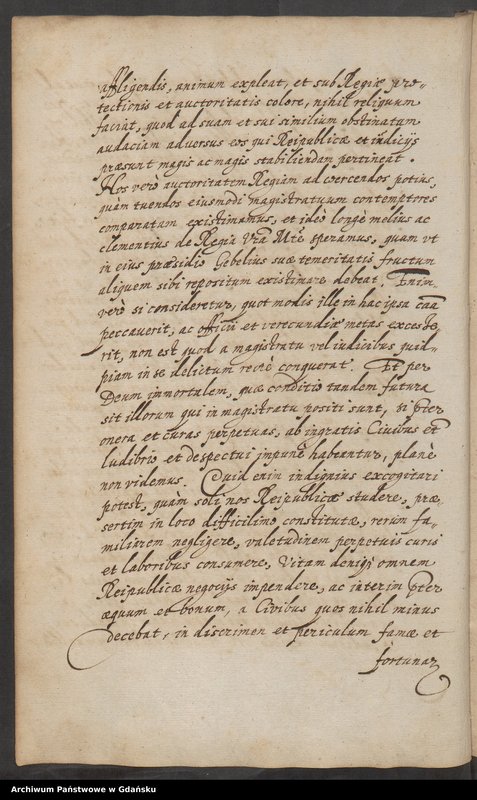 affligendis, animum expleat, et sub Regiæ pro-
tectionis et auctoritatis colore, nihil reliquum
faciat, quod ad suam et sui similium obstinatam
audaciam adversus eos qui Reipublicæ et iudicijs
præsunt magis ac magis stabiliendam pertineat.
Nos verò auctoritatem Regiam ad coercendos potius,
quàm tuendos eiusmodi magistratuum contemptores
comparatam existimamus, et ideo longè melius ac
clementius de Regia Vra Mte speramus, quam vt
in eius præsidio Gebelius suæ temeritatis fructum
aliquem sibi repositum existimare debeat. Enim-
verò si consideretur, quot modis ille in hac ipsa caâ
peccaverit, ac officii et verecundiæ metas excesse-
rit, non est quod a magistratu vel iudicibus quid-
piam in se delictum rectè conquerat. Et per
Deum immortalem, quæ conditio tandem futura
sit illorum qui in magistratu positi sunt, si pter
onera et curas perpetuas, ab ingratis Civibus et
ludibrio et despectui impunè habeantur, planè
non videmus. Quid enim indignius excogitari
potest, quàm soli nos Reipublicæ studere, præ-
sertim in loco difficilimo constitutæ, rerum fa-
miliarem negligere, valetudinem perpetuis curis
et laboribus consumere, Vitam deniqz omnem
Reipublicæ negocijs impendere, ac interim pter
æquum et bonum, a Civibus quos nihil minus
decebat, in discrimen et periculum famæ et
fortunar
Archiwum Państwowe w Gdańsku